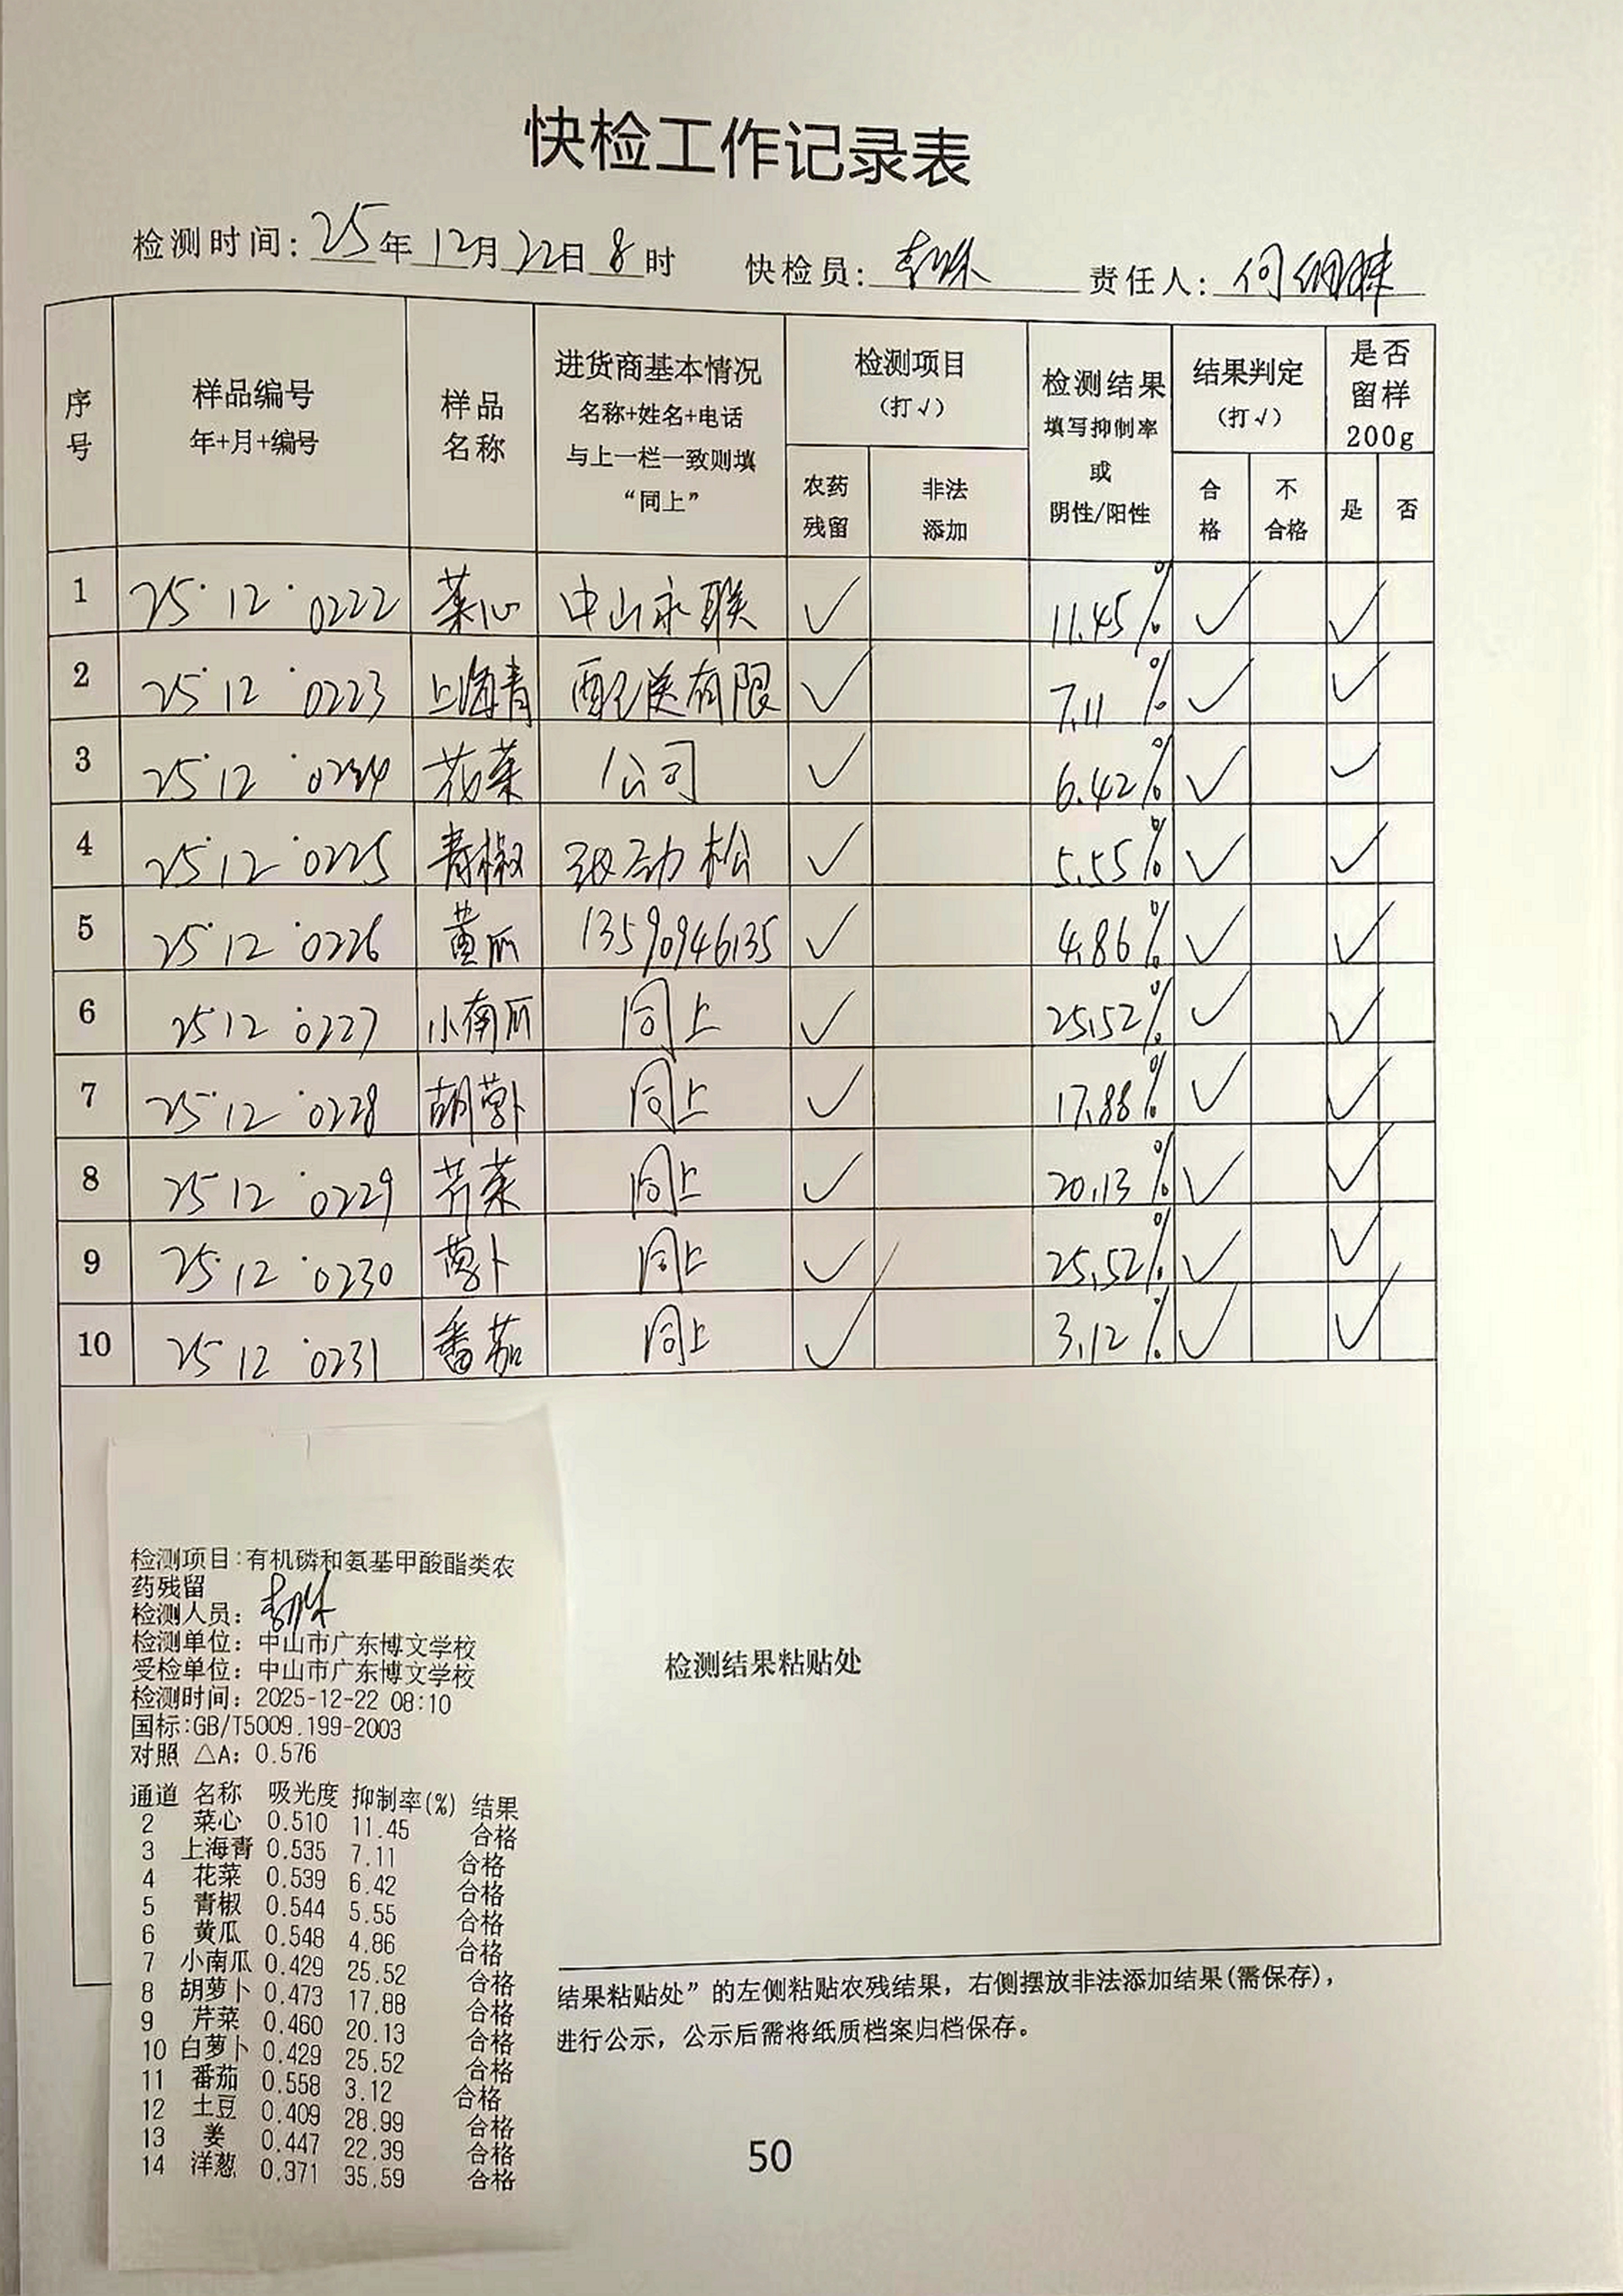 快检工作记录表
检测时间: 25年12月22日8时 快检员: 责任人: 何
序号 样品编号 年+月+编号 样品名称 进货商基本情况 名称+姓名+电话 与上一栏一致则填“同上” 检测项目(打√) 农药残留 非法添加 检测结果 填写抑制率 或 阴性/阳性 结果判定(打√) 合格 不合格 是否留样200g 是 否
1 25·12·0222 菜心 中山永联 √ 11.45% √ √
2 25·12·0223 上海青 配送有限 √ 7.11% √ √
3 25·12·0224 花菜 公司 √ 6.42% √ √
4 25·12·0225 青椒 劲松 √ 5.55% √ √
5 25·12·0226 黄瓜 13590946135 √ 4.86% √ √
6 2512·0227 小南瓜 同上 √ 25.52% √ √
7 25·12·0228 胡萝卜 同上 √ 17.88% √ √
8 2512·0229 芹菜 同上 √ 20.13% √ √
9 25·12·0230 萝卜 同上 √ 25.52% √ √
10 2512·0231 番茄 同上 √ 3.12% √ √
检测结果粘贴处
检测项目:有机磷和氨基甲酸酯类农
药残留
检测人员:
检测单位: 中山市广东博文学校
受检单位: 中山市广东博文学校
检测时间: 2025-12-22 08:10
国标:GB/T5009.199-2003
对照 △A: 0.576
通道 名称 吸光度 抑制率(%) 结果
2 菜心 0.510 11.45 合格
3 上海青 0.535 7.11 合格
4 花菜 0.539 6.42 合格
5 青椒 0.544 5.55 合格
6 黄瓜 0.548 4.86 合格
7 小南瓜 0.429 25.52 合格
8 胡萝卜 0.473 17.88 合格
9 芹菜 0.460 20.13 合格
10 白萝卜 0.429 25.52 合格
11 番茄 0.558 3.12 合格
12 土豆 0.409 28.99 合格
13 姜 0.447 22.39 合格
14 洋葱 0.371 35.59 合格
结果粘贴处”的左侧粘贴农残结果，右侧摆放非法添加结果(需保存)，
进行公示，公示后需将纸质档案归档保存。
50